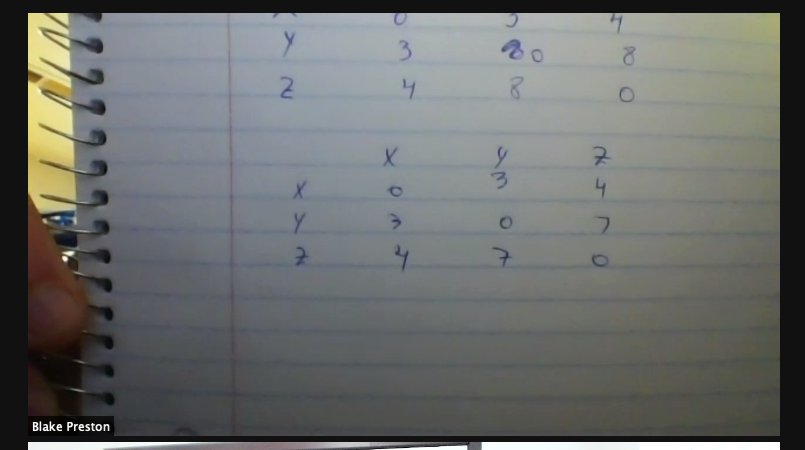 X 0 3 4
Y 3 0 8
Z 4 8 0
X Y Z
X 0 3 4
Y 3 0 7
Z 4 7 0
Blake Preston